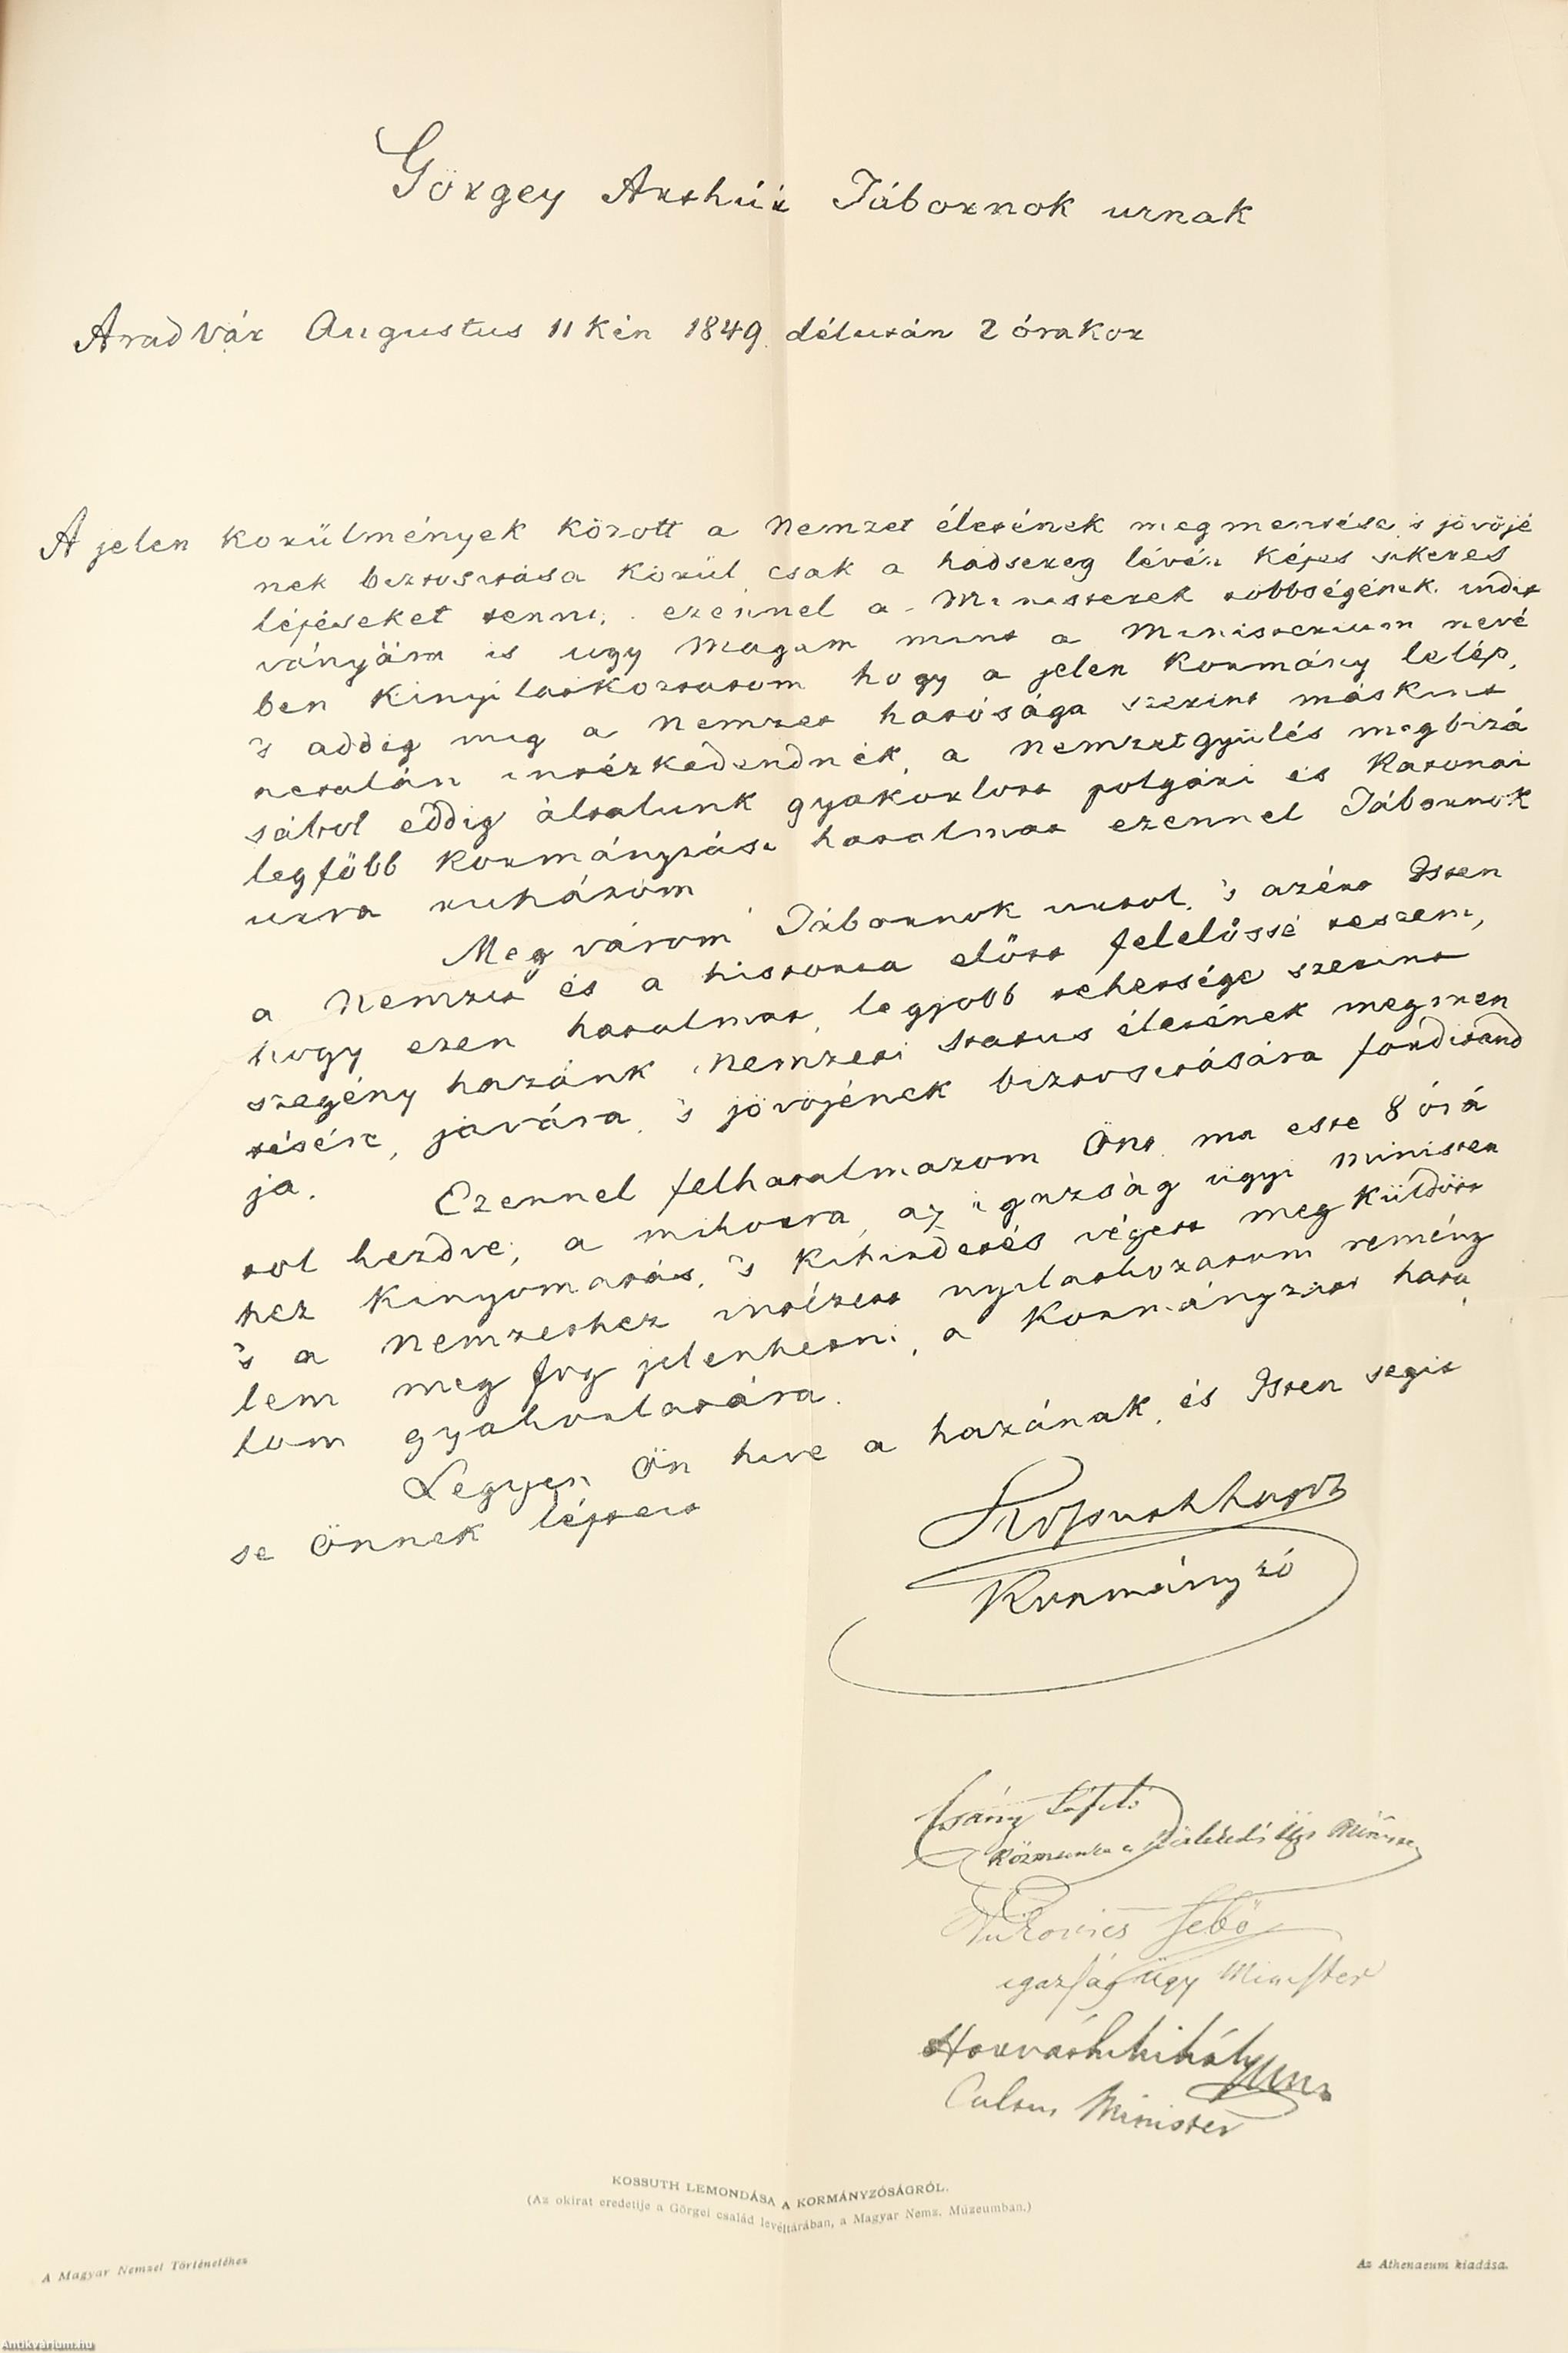 Görgey Arthúr Tábornok urnak
Arad Vár Augustus 11 kén 1849. délután 2 órakor
A jelen körülmények között a Nemzet életének megmentése 's jövőjé
nek biztositása körül csak a hadsereg lévén képes sikeres
lépéseket tenni, ezennel a Ministerek többségének indit
ványára is ugy magam mint a Ministerium nevé
ben kinyilatkoztatom hogy a jelen kormány lelép,
's addig mig a nemzet hatósága szerint máskint
netalán intézkedendnék, a nemzetgyülés megbizá
sából eddig általunk gyakorlott polgári és katonai
legfőbb kormányzási hatalmat ezennel Tábornok
urra ruházom
Meg várom Tábornok urtol, 's azért Isten
a Nemzet és a historia előtt felelőssé teszem,
hogy ezen hatalmat legjobb tehetsége szerint
szegény hazánk nemzeti status életének megmen
tésére, javára 's jövőjének biztositására forditand
ja.
Ezennel felhatalmazom Önt ma este 8 órá
tol kezdve, a mikorra az igazság ügyi minister
hez kinyomatás, 's kihirdetés végett meg küldött
's a Nemzethez intézett nyilatkozatom remény
lem meg fog jelenhetni, a kormányzati hata
lom gyakorlatára.
Legyen Ön hive a hazának, és Isten segit
se Önnek lépteit
Kossuth Lajos
Kormányzó
Csány László
Közmunka s Közlekedés Ügyi Minister
Vukovics Sebő
igazság ügy Minister
Horváth Mihály
Cultus Minister
KOSSUTH LEMONDÁSA A KORMÁNYZÓSÁGRÓL.
(Az okirat eredetije a Görgei család levéltárában, a Magyar Nemz. Múzeumban.)
A Magyar Nemzet Történetéhez
Az Athenaeum kiadása.
Antikvárium.hu